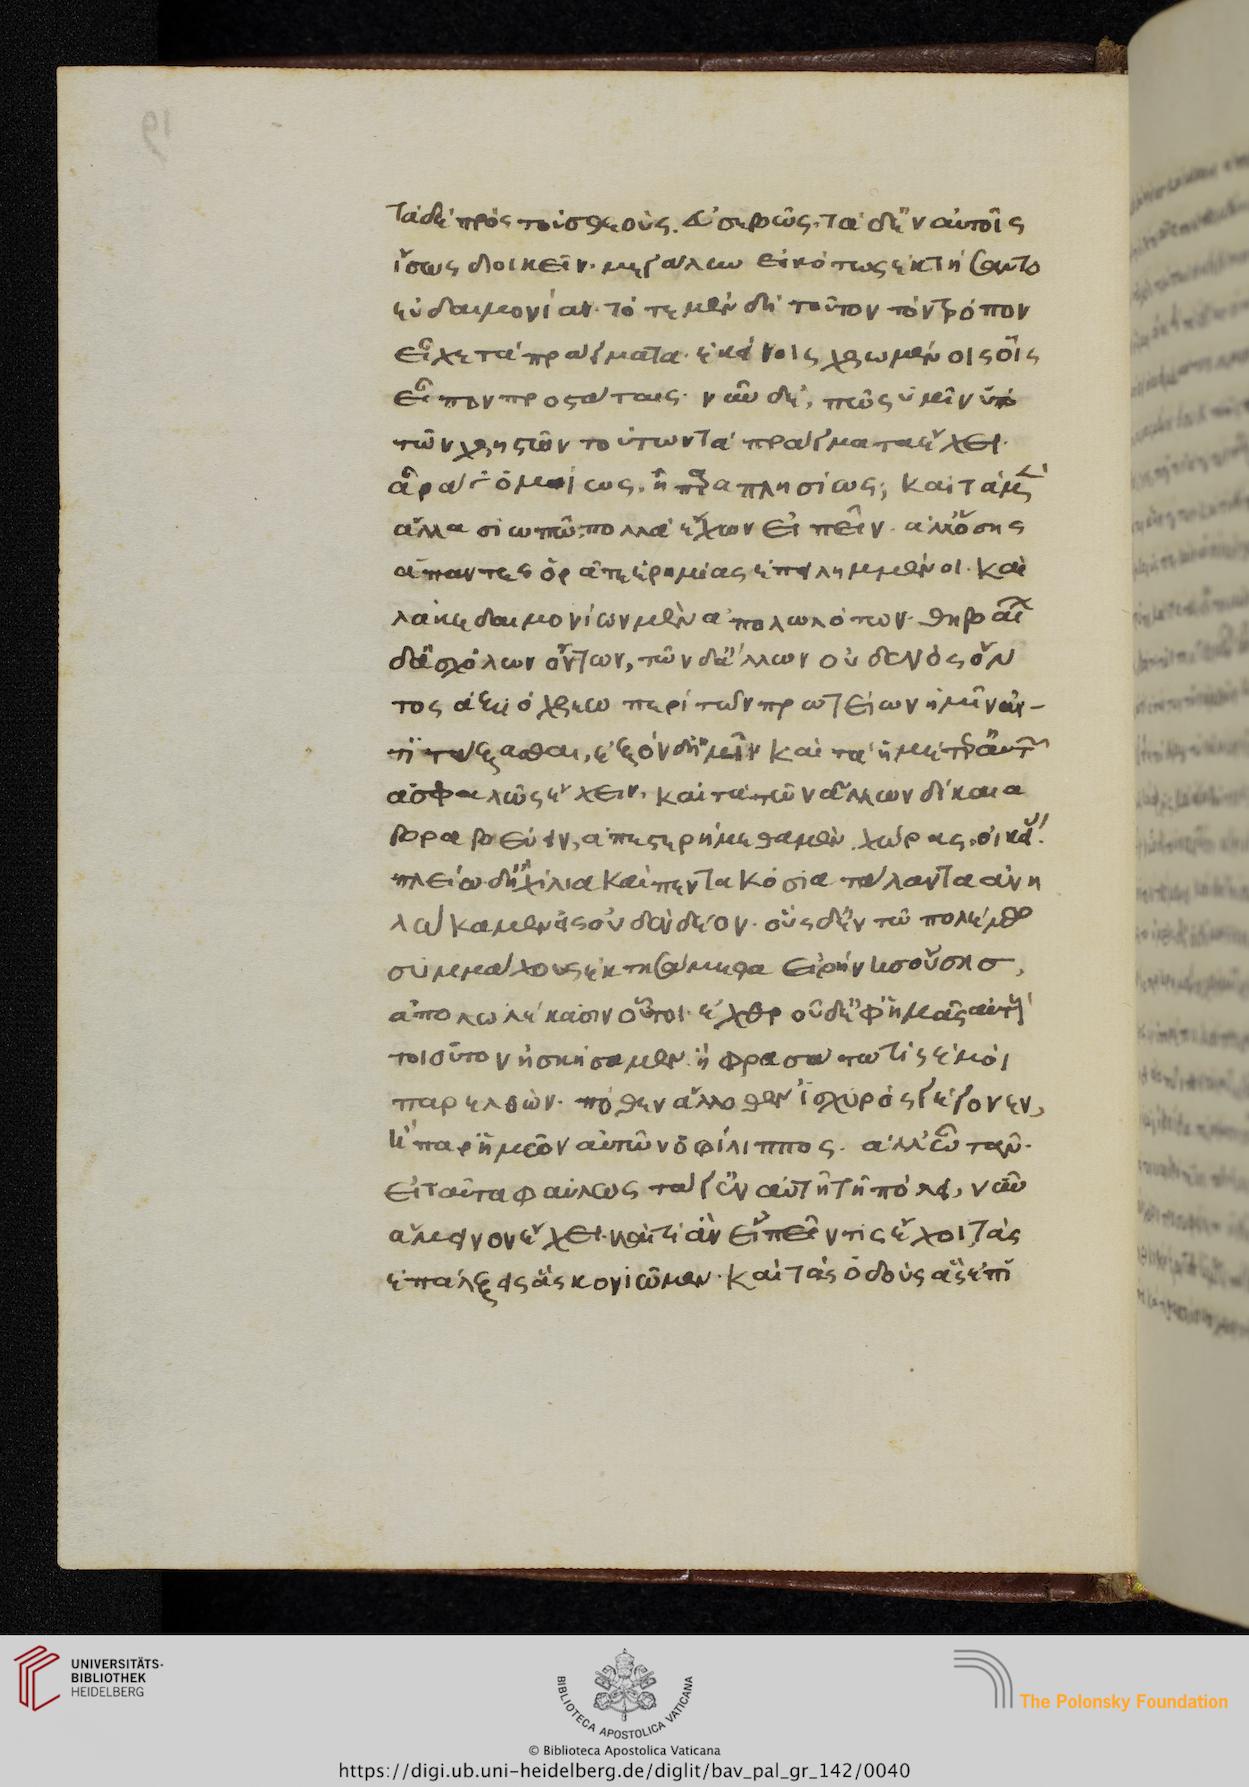 19
τὰ δὲ πρὸς τοὺς θεοὺς εὐσεβῶς. τὰ δ' ἐν αὑτοῖς
ἴσως διοικεῖν. μεγάλην εἰκότως ἐκτήσαντο
εὐδαιμονίαν. τότε μὲν δὴ τοῦτον τὸν τρόπον
εἶχε τὰ πράγματα ἐκείνοις χρωμένοις οἷς
εἶπον προστάταις. νῦν δὲ, πῶς ὑμῖν ὑπὸ
τῶν χρηστῶν τούτων τὰ πράγματα ἔχει.
ἆρά γε ὁμοίως, ἢ παραπλησίως; καὶ τὰ μὲν
ἄλλα σιωπῶ, πολλὰ ἔχων εἰπεῖν. ἀλλ' ὅσης
ἅπαντες ὁρᾶτε ἐρημίας ἐπειλημμένοι. καὶ
λακεδαιμονίων μὲν ἀπολωλότων. θηβαίων
δ' ἀσχόλων ὄντων, τῶν δ' ἄλλων οὐδενὸς ὄν
τος ἀξιόχρεω περὶ τῶν πρωτείων ἡμῖν ἀν-
τιτάξασθαι, ἐξὸν δ' ἡμῖν καὶ τὰ ἡμέτερα αὐτῶν
ἀσφαλῶς ἔχειν, καὶ τὰ τῶν ἄλλων δίκαια
βραβεύειν, ἀπεστερήμεθα μὲν χώρας οἰκείας.
πλείω δ' ἢ χίλια καὶ πεντακόσια τάλαντα ἀνη
λώκαμεν εἰς οὐδὲν δέον. οὓς δ' ἐν τῷ πολέμῳ
συμμάχους ἐκτησάμεθα εἰρήνης οὔσης,
ἀπολωλέκασιν οὗτοι. ἐχθρὸν δ' ἐφ' ἡμᾶς αὐτοὺς
τοιοῦτον ἠσκήσαμεν. ἢ φρασάτω τὶς ἐμοὶ
παρελθὼν. πόθεν ἄλλοθεν ἰσχυρὸς γέγονεν,
ἢ παρ' ἡμῶν αὐτῶν ὁ φίλιππος. ἀλλ' ὦ τᾶν.
εἰ ταῦτα φαύλως τά γ' ἐν αὐτῇ τῇ πόλει, νῦν
ἄμεινον ἔχει. καὶ τί ἂν εἰπεῖν τὶς ἔχοι τὰς
ἐπάλξεις ἃς κονιῶμεν. καὶ τὰς ὁδοὺς ἃς ἐπι
UNIVERSITÄTS-
BIBLIOTHEK
HEIDELBERG
BIBLIOTECA APOSTOLICA VATICANA
The Polonsky Foundation
© Biblioteca Apostolica Vaticana
https://digi.ub.uni-heidelberg.de/diglit/bav_pal_gr_142/0040